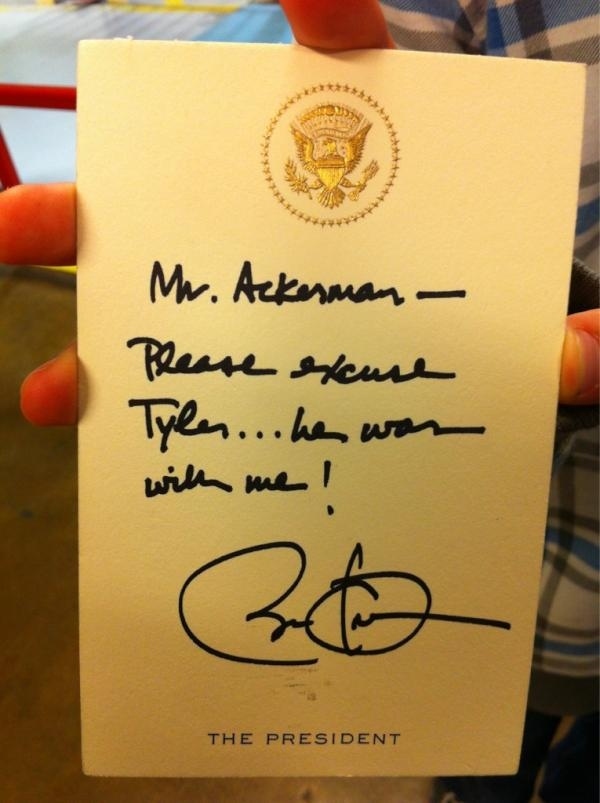 Mr. Ackerman —
Please excuse
Tyler... he was
with me!
THE PRESIDENT